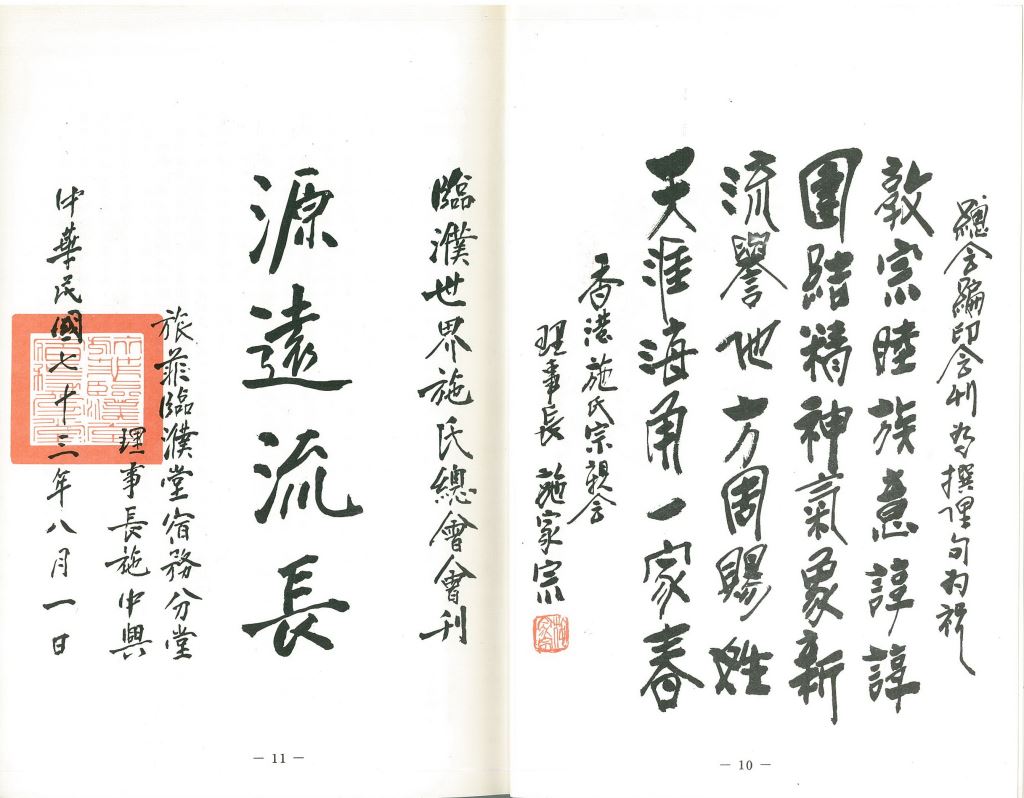 總會編印會刊為撰俚句為祝
敦宗睦族意諄諄
團結精神氣象新
流譽他方周賜姓
天涯海角一家春
香港施氏宗親會
理事長 施家宗
－ 10 －
臨濮世界施氏總會會刊
源遠流長
旅菲臨濮堂宿務分堂
理事長施中興
中華民國七十三年八月一日
－ 11 －